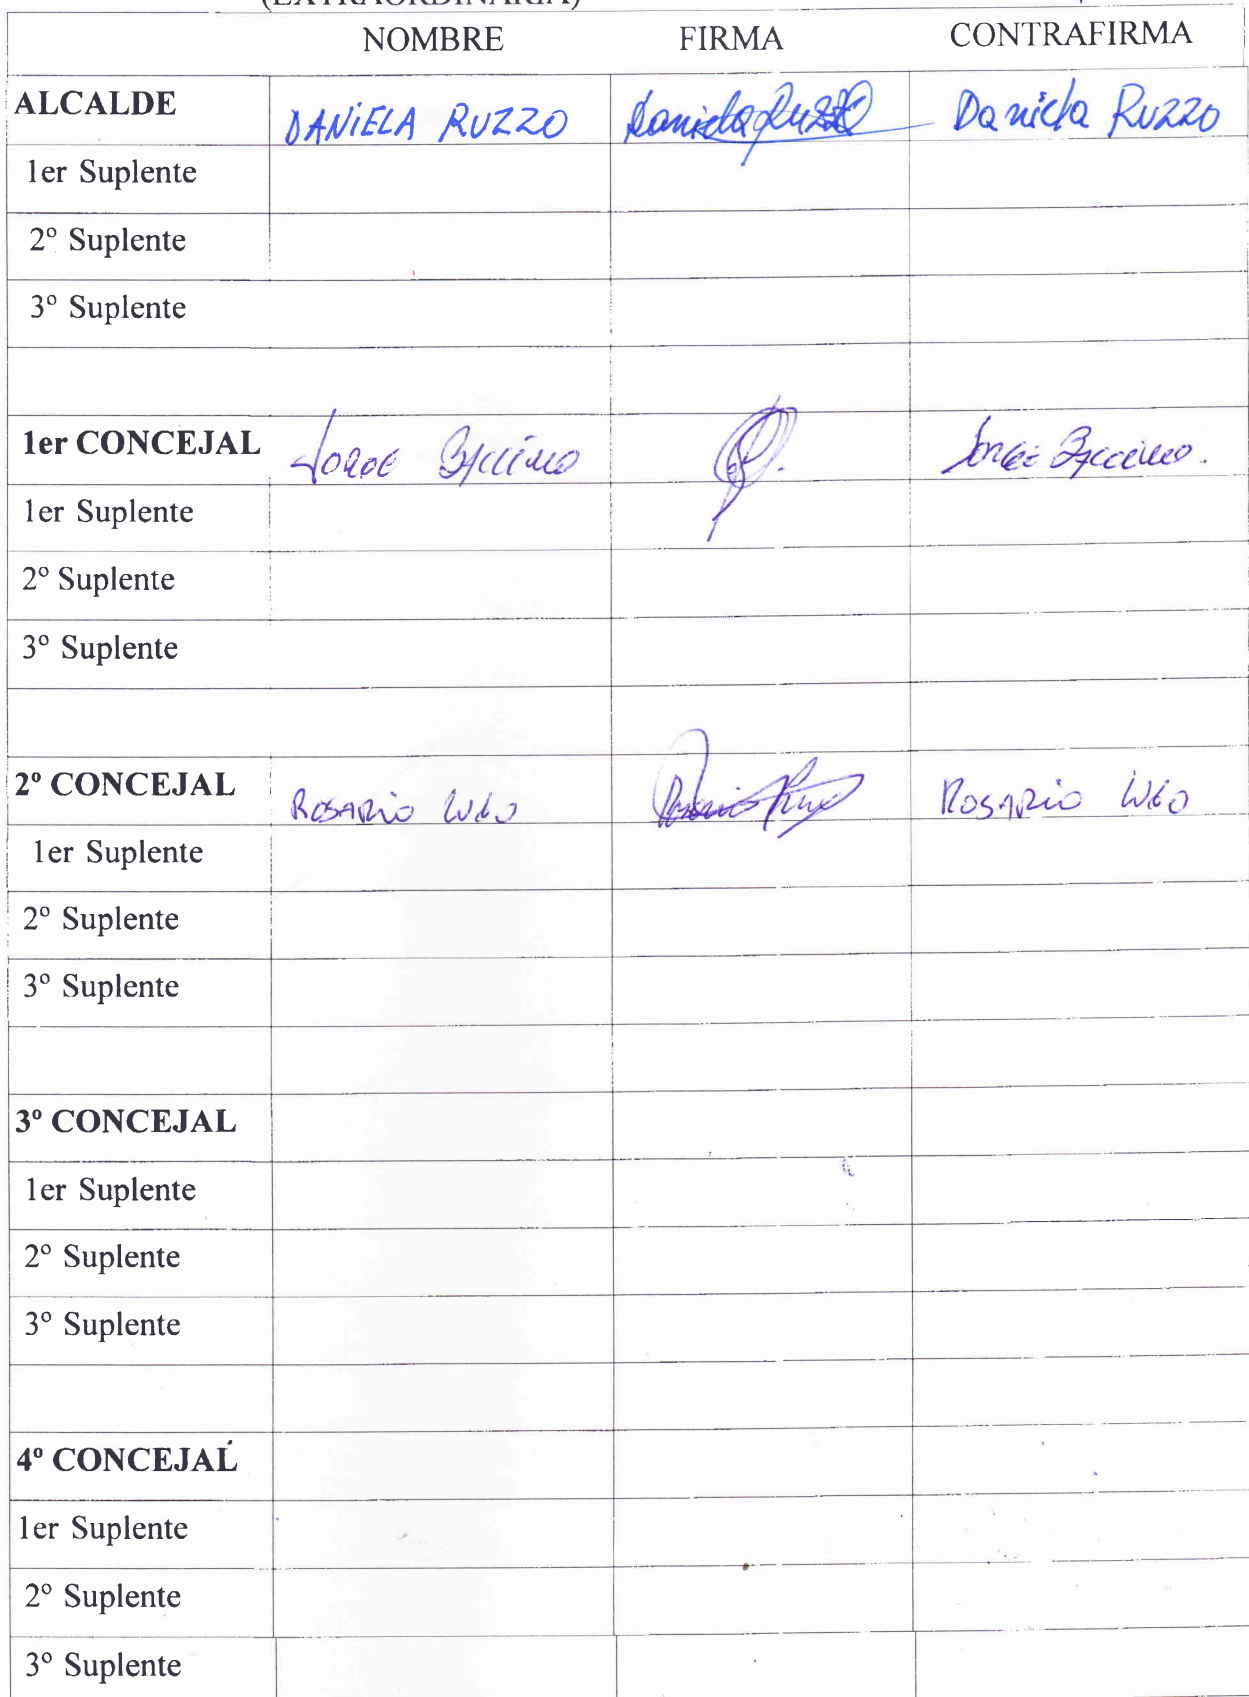 (EXTRAORDINARIA)
NOMBRE FIRMA CONTRAFIRMA
ALCALDE DANiELA RUZZO Daniela Ruzzo Daniela Ruzzo
1er Suplente
2º Suplente
3º Suplente
1er CONCEJAL Jorge Jorge
1er Suplente
2º Suplente
3º Suplente
2º CONCEJAL ROSARiO ROSARiO
1er Suplente
2º Suplente
3º Suplente
3º CONCEJAL
1er Suplente
2º Suplente
3º Suplente
4º CONCEJAL
1er Suplente
2º Suplente
3º Suplente